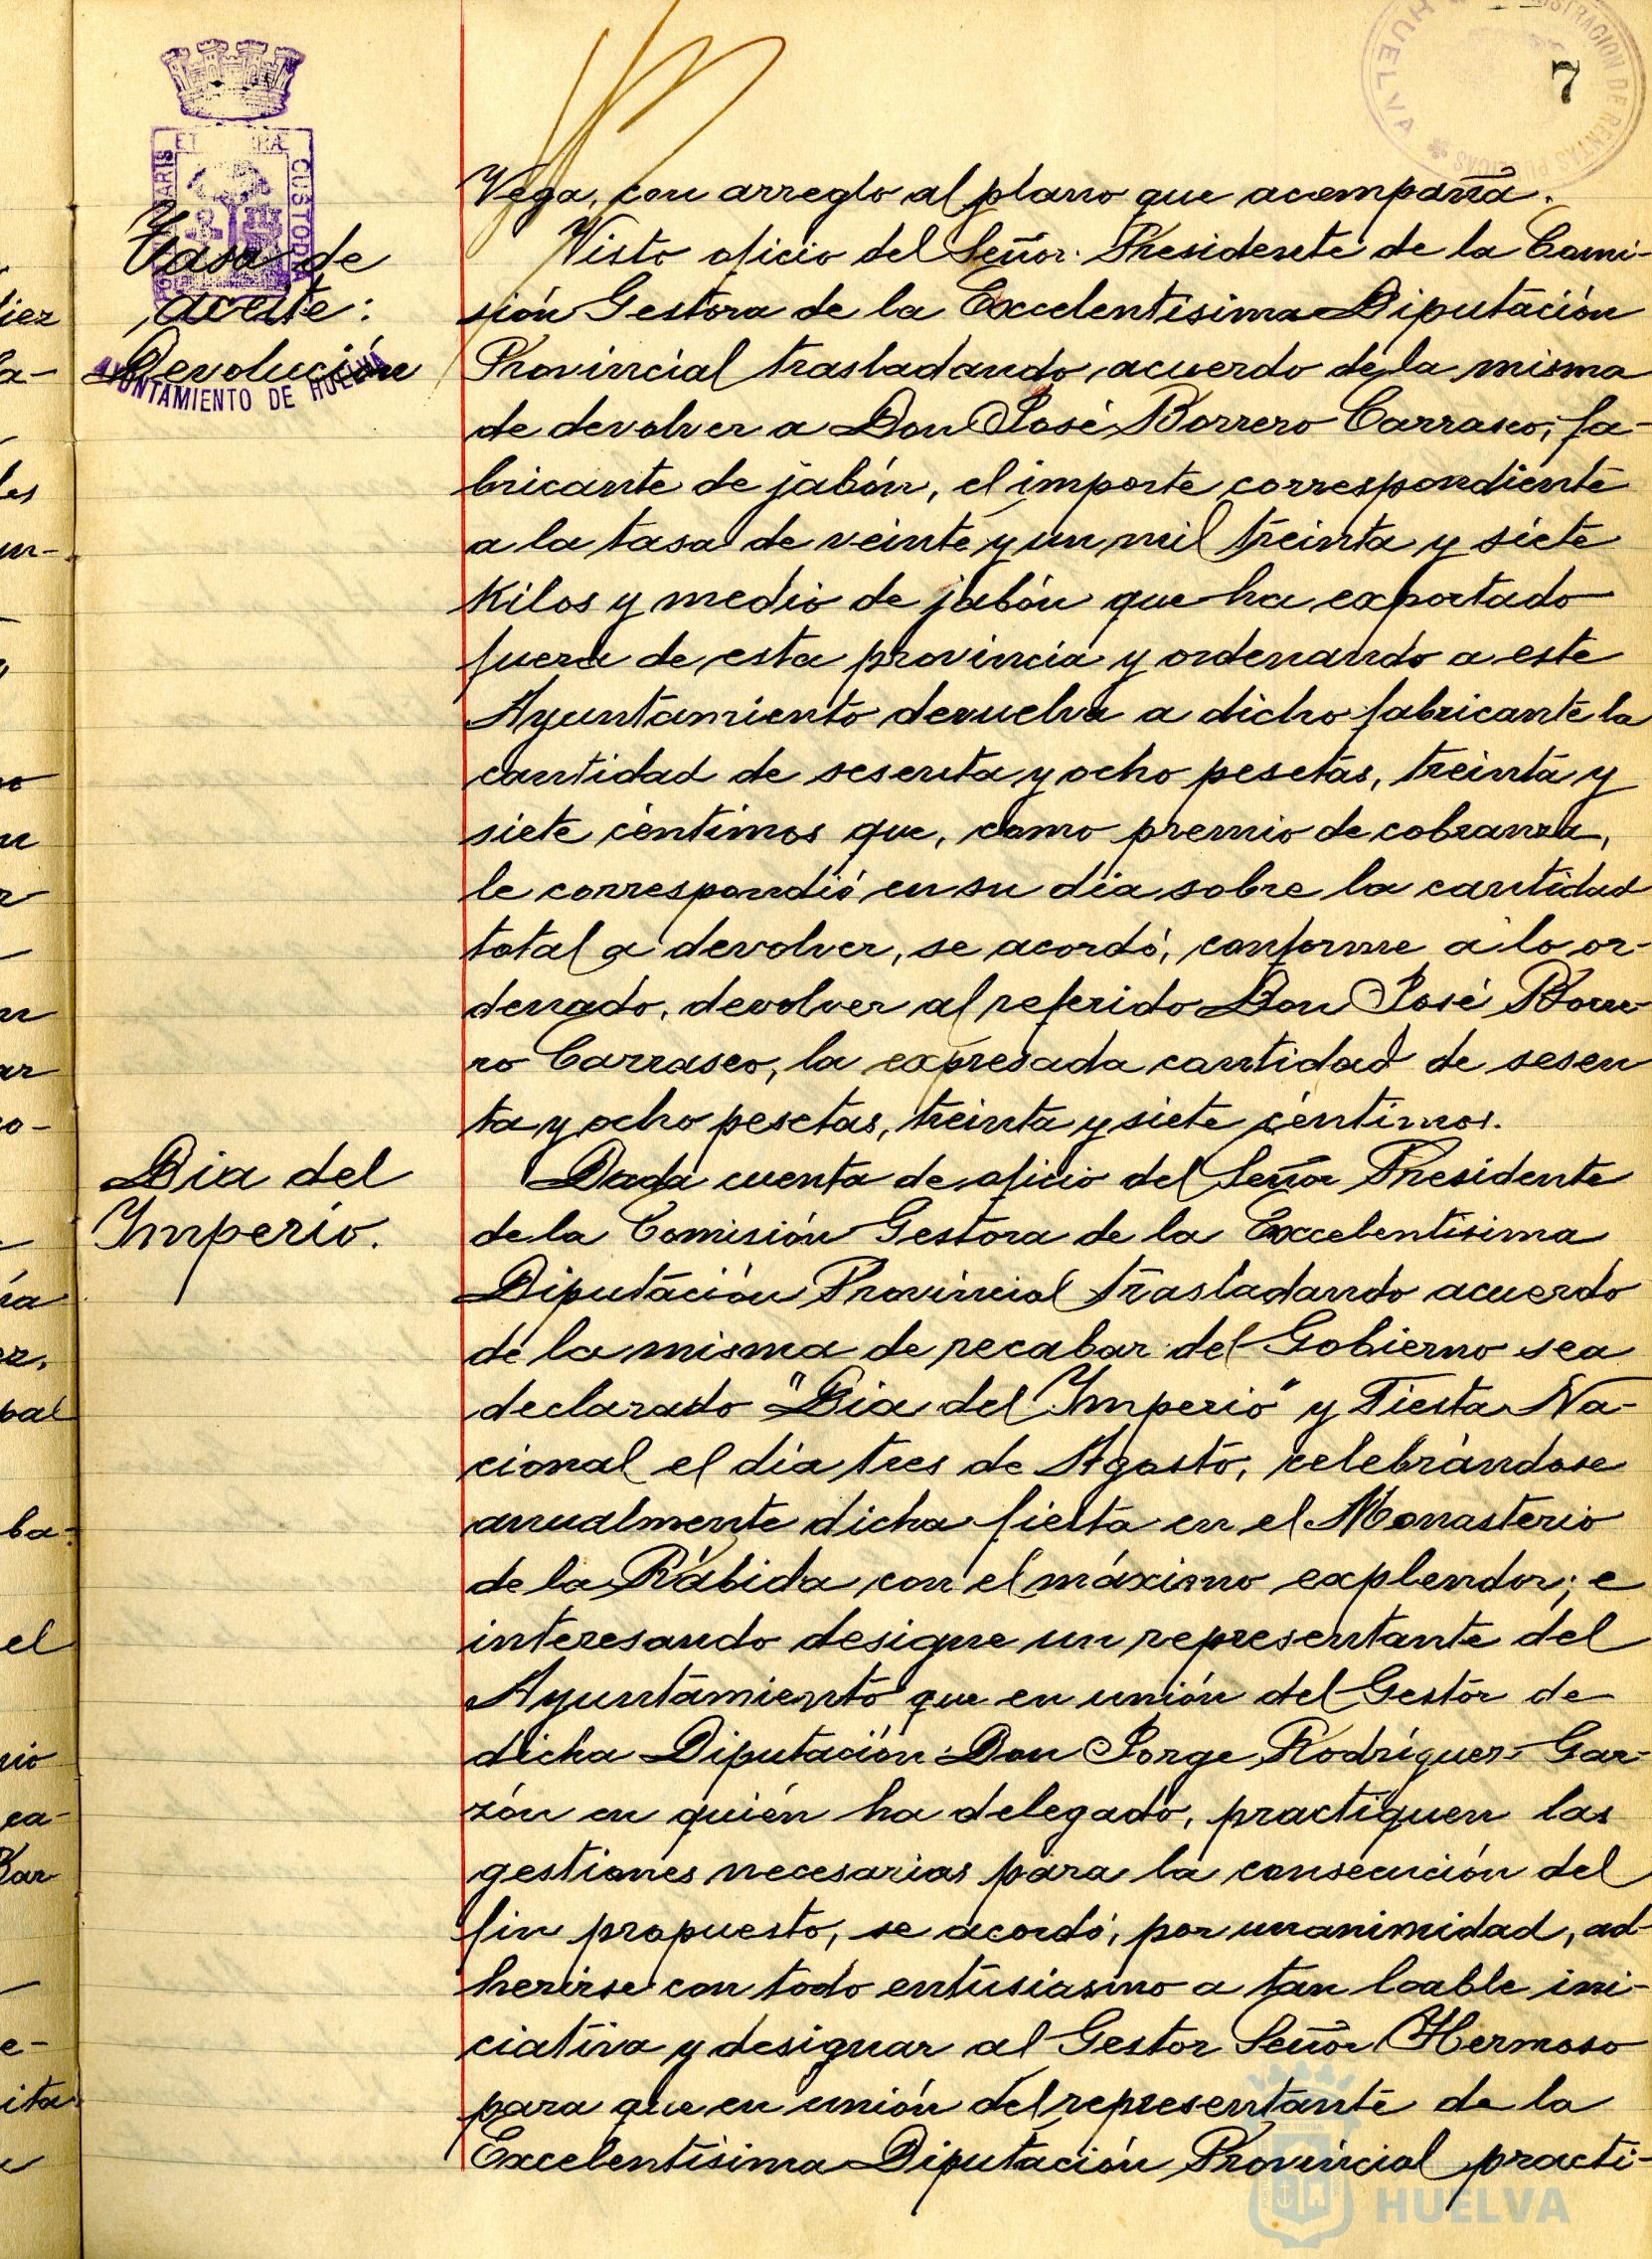 7
Vega, con arreglo al plano que acompaña.
Tasa de
aceite:
Devolución
AYUNTAMIENTO DE HUELVA
Visto oficio del Señor Presidente de la Comi-
sión Gestora de la Excelentísima Diputación
Provincial trasladando acuerdo de la misma
de devolver a Don José Borrero Carrasco, fa-
bricante de jabón, el importe correspondiente
a la tasa de veinte y un mil treinta y siete
Kilos y medio de jabón que ha exportado
fuera de esta provincia y ordenando a este
Ayuntamiento devuelva a dicho fabricante la
cantidad de sesenta y ocho pesetas, treinta y
siete céntimos que, como premio de cobranza,
le correspondió en su día sobre la cantidad
total a devolver, se acordó, conforme a lo or-
denado, devolver al referido Don José Borre-
ro Carrasco, la expresada cantidad de sesen
ta y ocho pesetas, treinta y siete céntimos.
Dia del
Imperio.
Dada cuenta de oficio del Señor Presidente
de la Comisión Gestora de la Excelentísima
Diputación Provincial trasladando acuerdo
de la misma de recabar del Gobierno sea
declarado "Dia del Imperio" y Fiesta Na-
cional el día tres de Agosto, celebrándose
anualmente dicha fiesta en el Monasterio
de la Rábida con el máximo explendor; e
interesando designe un representante del
Ayuntamiento que en unión del Gestor de
dicha Diputación Don Jorge Rodríguez Gar-
zón en quién ha delegado, practiquen las
gestiones necesarias para la consecución del
fin propuesto, se acordó, por unanimidad, ad-
herirse con todo entusiasmo a tan loable ini-
ciativa y designar al Gestor Señor Hermoso
para que en unión del representante de la
Excelentísima Diputación Provincial practi-
HUELVA